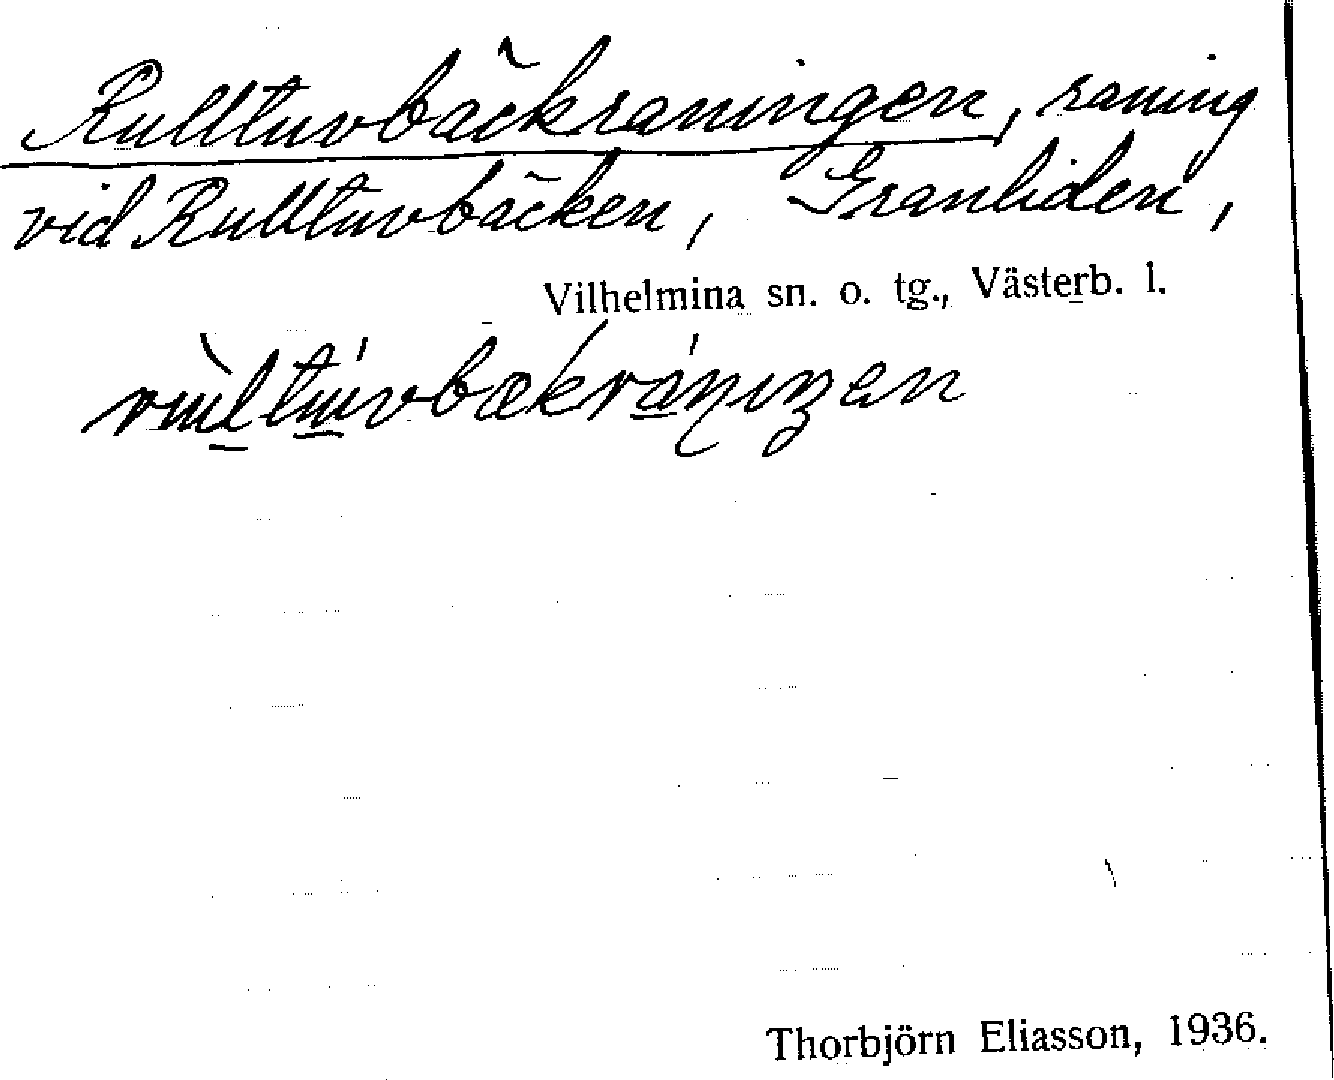 Rulltuvbäckraningen, raning
vid Rulltuvbäcken, Granliden,
Vilhelmina sn. o. tg., Västerb. l.
Thorbjörn Eliasson, 1936.